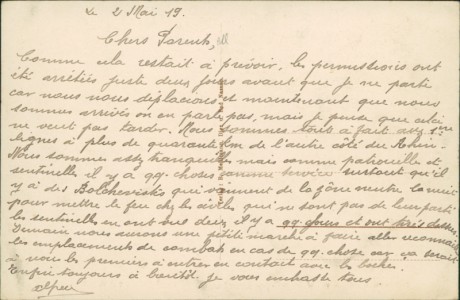 Le 2 Mai 19.
Chers Parents,
Comme cela restait à prévoir, les permissions ont
été arrêtées juste deux jours avant que je ne parte
car nous nous déplacions et maintenant que nous
sommes arrivés on en parte pas, mais je pense que celui
ne veut pas tarder. Nous sommes tout à fait aux 1ères
lignes à plus de quarante km de l'autre côté du Rhin.
Nous sommes assez tranquilles mais comme patrouille et
sentinelle il y a qq. chose comme service surtout qu'il
y a des Bolchevistes qui viennent de la zone neutre la nuit
pour mettre le feu chez les civils qui ne sont pas de leur parti
les sentinelles en ont vue deux il y a qq. jours et ont tirés dessus.
Demain nous aurons une petite marche à faire aller reconnaitre
les emplacements de combat en cas de qq. chose car ça serait
à nous les premiers à entrer en contact avec les boches.
Enfin toujours à bientôt je vous embrasse tous